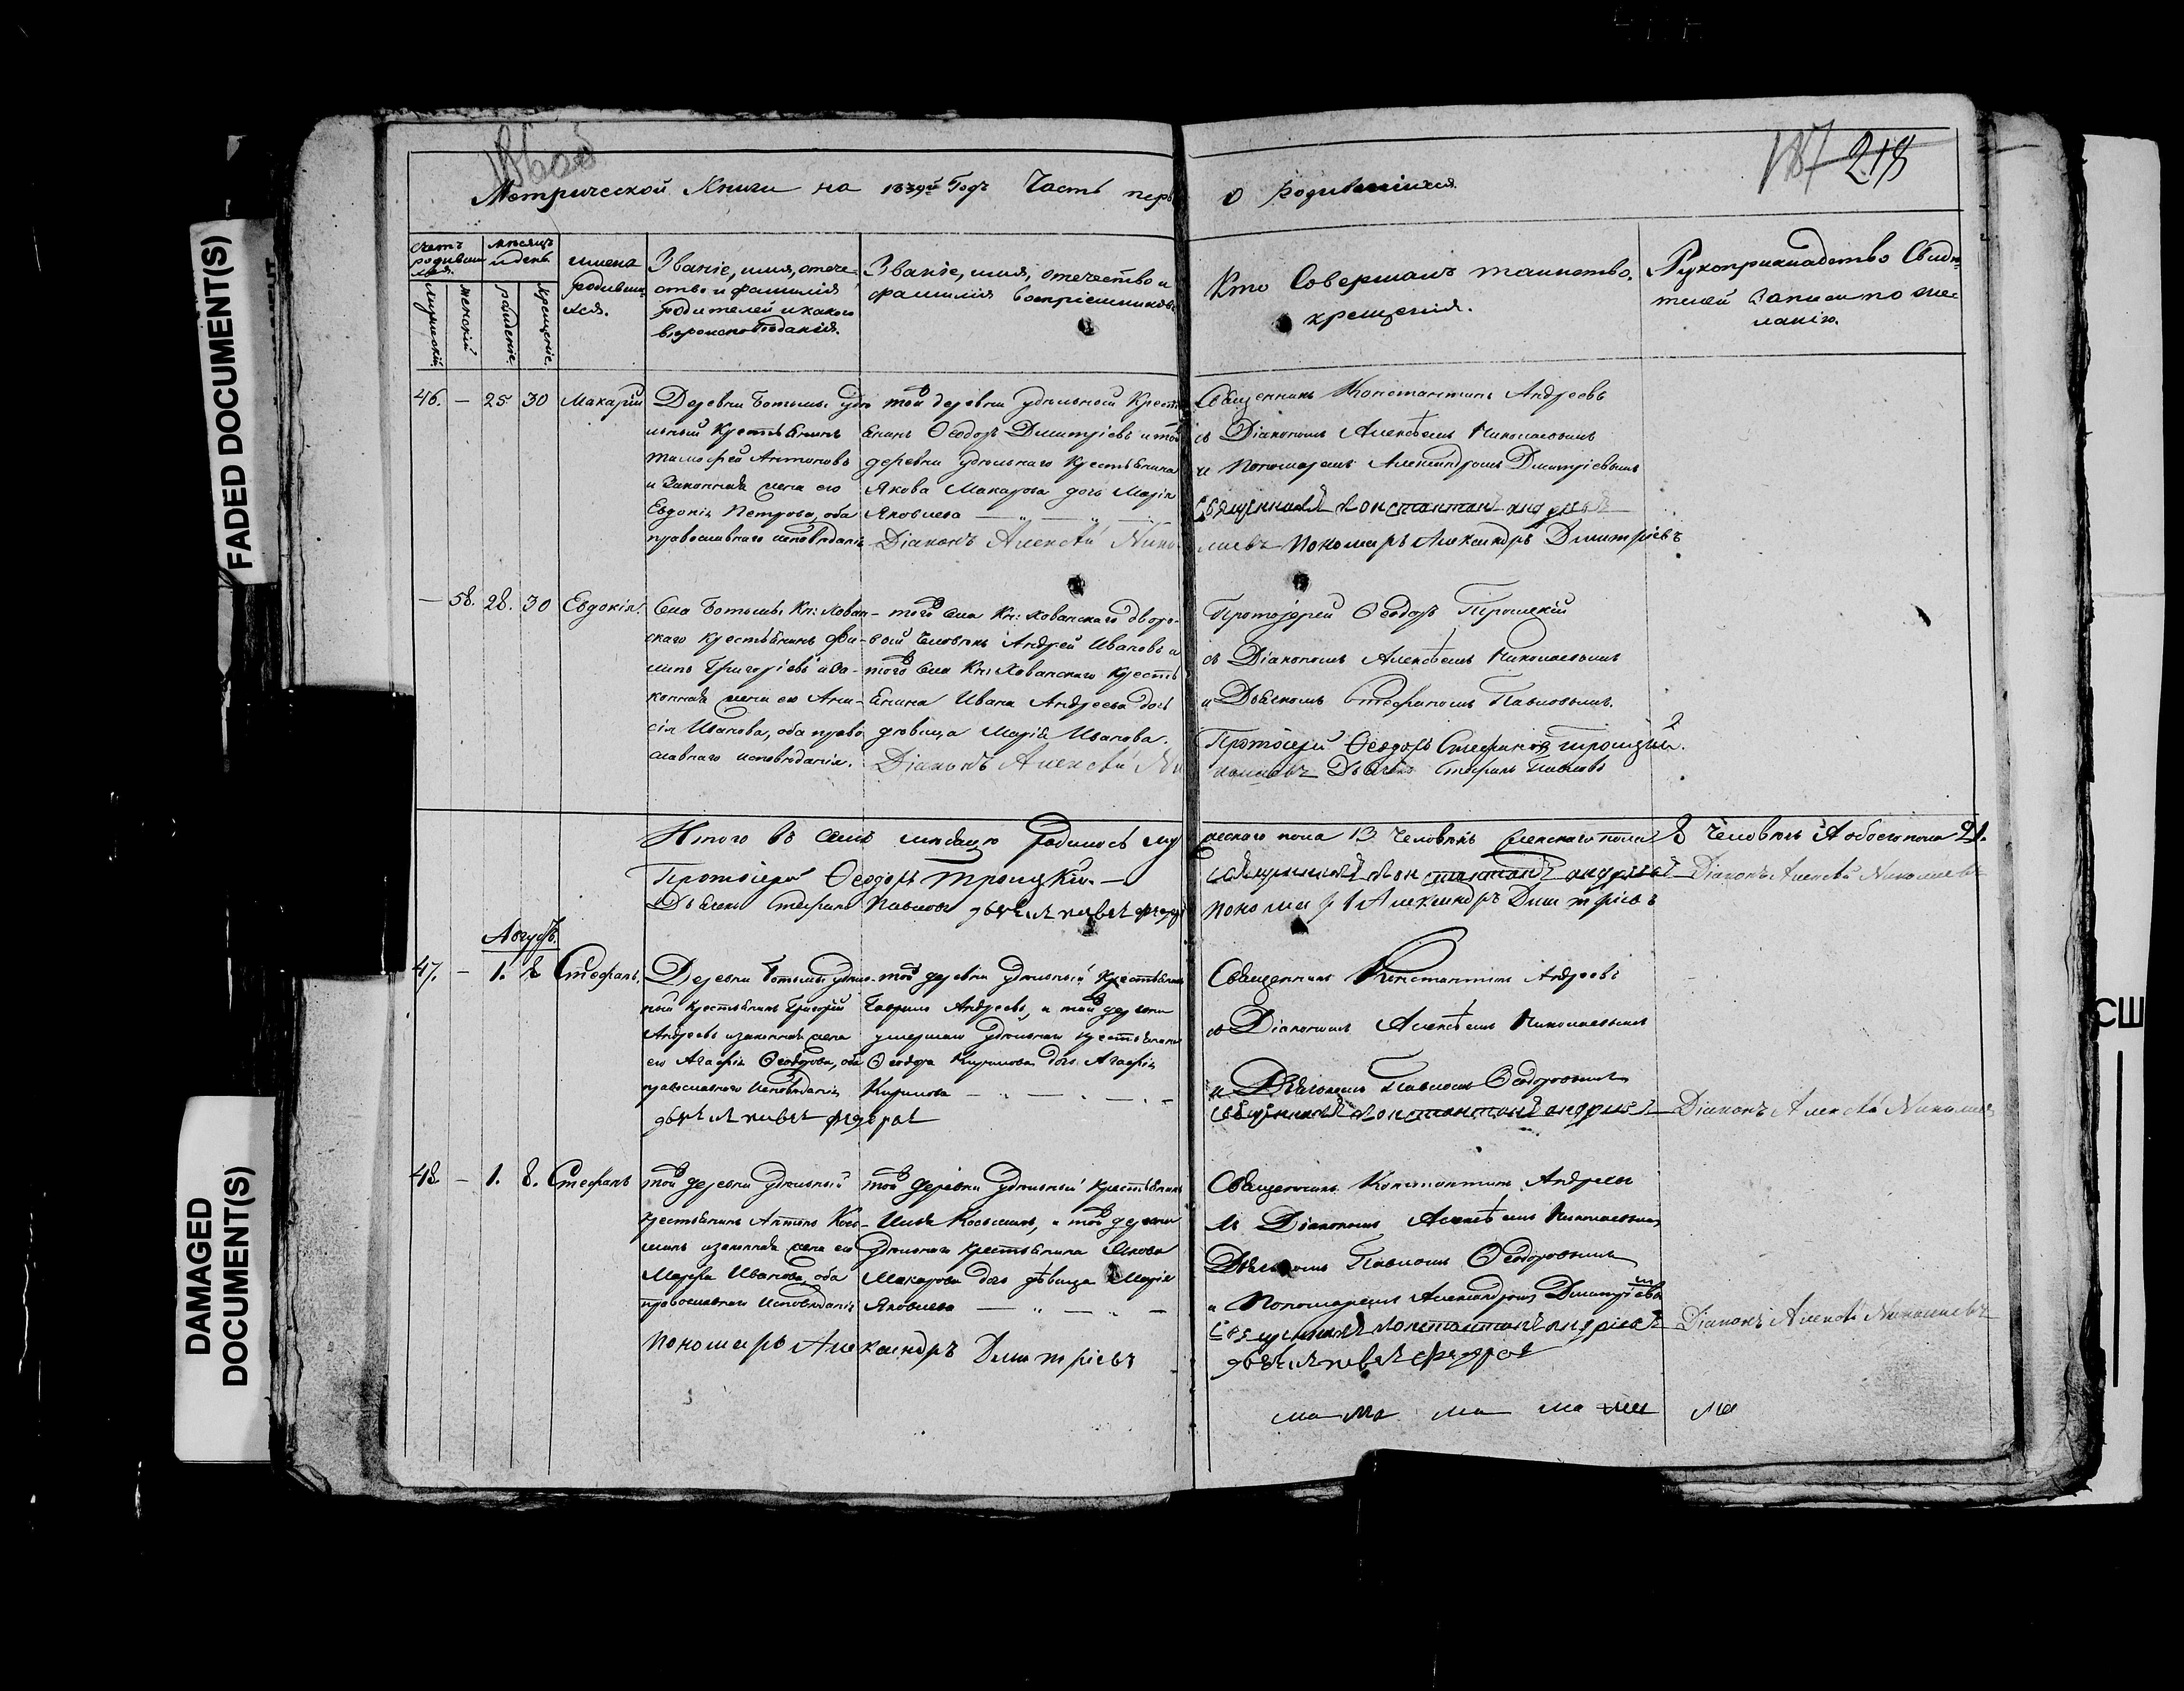 187 218
Метрической Книги на 1839й Годъ Часть перв
о родившихся.
счетъ родивших
ся.
мужескій.
женскій
мѣсяцъ
и день
рожденіе.
крещеніе.
имена
родивши
хся.
Званіе, имя, отече-
ство и фамилія
родителей и какого
вѣроисповѣданія.
Званіе, имя, отечество и
фамилія воспріемниковъ
Кто Совершалъ таинство
крещенія.
Рукоприкладство Свидѣ-
телей записи по же-
ланію.
46. — 25 30 Макарій
Деревни Ботьмы удѣ
льный Крестьянинъ
Тимофей Антоновъ
и Законная жена его
Евдокія Петрова, оба
православнаго исповѣданія
той деревни удѣльной Крестья
янинъ Ѳеодоръ Димитріевъ и той
деревни удѣльнаго Крестьянина
Якова Макарова дочь Марія
Яковлева
Діаконъ Алексѣй Нико
Священникъ Константинъ Андреевъ
съ Діакономъ Алексѣемъ Николаевымъ
и Пономаремъ Александромъ Димитріевымъ
Священникъ Константинъ Андреевъ
лаевъ Пономарь Александръ Димитріевъ
— 58. 28. 30 Евдокія.
Села Ботьмы Кн: Хован-
скаго крестьянинъ Фи-
липъ Григорьевъ и За-
конная жена его Ана-
сія Иванова, оба право
славнаго исповѣданія.
того Села Кн: Хованскаго дворо-
вой человѣкъ Андрей Ивановъ и
того Села Кн: Хованскаго Кресть
янина Ивана Андреева дочь
дѣвица Марія Иванова.
Діаконъ Алексѣй Ни
Протоіерей Ѳеодоръ Троицкій
съ Діакономъ Алексѣемъ Николаевымъ
и Дьячкомъ Стефаномъ Павловымъ.
Протоіерей Ѳеодоръ Стефановъ Троицкій.
колаевъ Дьячекъ Стефанъ Павловъ
Итого въ семъ мѣсяцѣ родилось му
жескаго пола 13 Человѣкъ женскаго пола 8 Человѣкъ А обоего пола 21.
Протоіерей Ѳеодоръ Троицкій —
Священникъ Константинъ Андреевъ Діаконъ Алексѣй Николаевъ
Дьячекъ Стефанъ Павловъ
Пономарь Александръ Димитріевъ
Августъ.
47. — 1. 8 Стефанъ.
Деревни Ботьмы удѣль-
ный Крестьянинъ Григорій
Андреевъ и законная жена
его Агафія Ѳеодорова, оба
православнаго Исповѣданія
той деревни удѣльный Крестьянинъ
Гаврилъ Андреевъ, и той деревни
умершаго удѣльнаго крестьянина
Ѳеодора Кирилова дочь Агафія
Кирилова
Священникъ Константинъ Андреевъ
съ Діакономъ Алексѣемъ Николаевымъ
и Дьячкомъ Павломъ Ѳеодоровымъ
Священникъ Константинъ Андреевъ Діаконъ Алексѣй Николаевъ
48. — 1. 8. Стефанъ
той деревни удѣльный
крестьянинъ Антонъ Кось-
минъ и законная жена его
Марфа Иванова, оба
православнаго Исповѣданія
Пономарь Александръ Димитріевъ
той деревни удѣльный Крестьянинъ
Илья Косьминъ, и той деревни
удѣльнаго крестьянина Якова
Макарова дочь дѣвица Марія
Яковлева
Священникъ Константинъ Андреевъ
съ Діакономъ Алексѣемъ Николаевымъ
Дьячкомъ Павломъ Ѳеодоровымъ
и Пономаремъ Александромъ Димитріевымъ
Священникъ Константинъ Андреевъ Діаконъ Алексѣй Николаевъ
ма ма ма ма
FADED DOCUMENT(S)
DAMAGED
DOCUMENT(S)
США